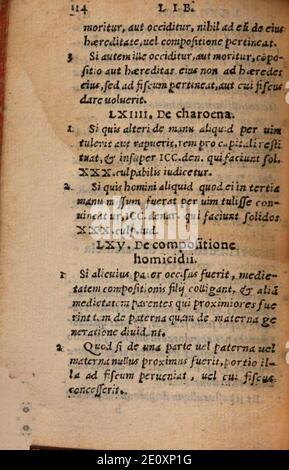 114 L I B.
moritur, aut occiditur, nihil ad eũ de eius
hæreditate, uel compositione pertineat.
3 Si autem ille occiditur, aut moritur, cōpo-
sitio aut hæreditas eius non ad hæredes
eius, sed ad fiscum pertineat, aut cui fiscus
dare uoluerit.
LXIIII. De charoena.
1. Si quis alteri de manu aliquid per uim
tulerit aut rapuerit, rem pro capitali resti
tuat, & insuper ICC. den. qui faciunt sol.
XXX. culpabilis iudicetur.
2. Si quis homini aliquid quod ei in tertia
manu missum fuerat per uim tulisse con-
uincatur, ICC. denar. qui faciunt solidos
XXX. culp. iud.
LXV. De compositione
homicidii.
1. Si alicuius pater occisus fuerit, medie-
tatem compositionis filij colligant, & aliã
medietatem parentes qui proximiores fue
rint tam de paterna quàm de materna ge
neratione diuidant.
2. Quod si de una parte uel paterna uel
materna nullus proximus fuerit, portio il-
la ad fiscum perueniat, uel cui fiscus
concesserit.
alamy
Image ID: 2E0XP1G
www.alamy.com